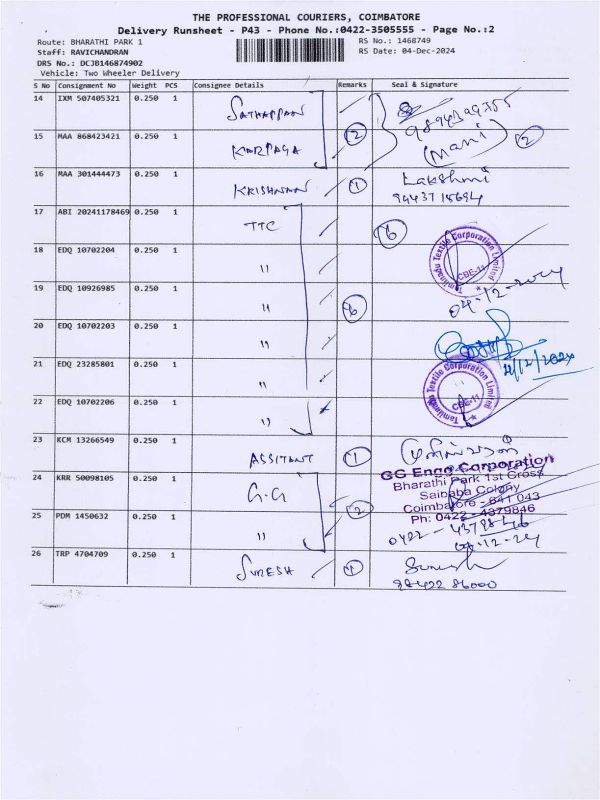 THE PROFESSIONAL COURIERS, COIMBATORE
Delivery Runsheet - P43 - Phone No.:0422-3505555 - Page No.:2
Route: BHARATHI PARK 1 RS No.: 1468749
Staff: RAVICHANDRAN RS Date: 04-Dec-2024
DRS No.: DCJB146874902
Vehicle: Two Wheeler Delivery
S No Consignment No Weight PCS Consignee Details Remarks Seal & Signature
14 IXM 507405321 0.250 1 SATHAPPAN
15 MAA 868423421 0.250 1 KARPAGA 2 (Mani) 2
16 MAA 301444473 0.250 1 KRISHNAN 1 Lakshmi
17 ABI 20241178469 0.250 1 TTC 6
Tamilnadu Textile Corporation Limited CBE-11
18 EDQ 10702204 0.250 1 "
04-12-2024
19 EDQ 10926985 0.250 1 " 6
20 EDQ 10702203 0.250 1 "
21 EDQ 23285801 0.250 1 "
Tamilnadu Textile Corporation Limited CBE-11
22 EDQ 10702206 0.250 1 "
23 KCM 13266549 0.250 1 ASSITANT 1
GG Engg Corporation
24 KRR 50098105 0.250 1 G.G
Bharathi Park 1st Cross
Saibaba Colony
Coimbatore - 641 043
Ph: 0422 - 4379846
25 PDM 1450632 0.250 1 " 2
0422 - 4379846
04-12-24
26 TRP 4704709 0.250 1 SURESH 1 Suresh
98422 86000